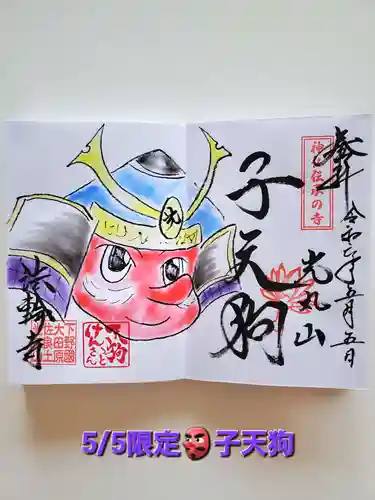 奉拝
令和六年五月五日
神と伝承の寺
光丸山
子天狗
法輪寺
下野國
大田原
佐良土
天狗
と
けんさん
5/5限定👺子天狗